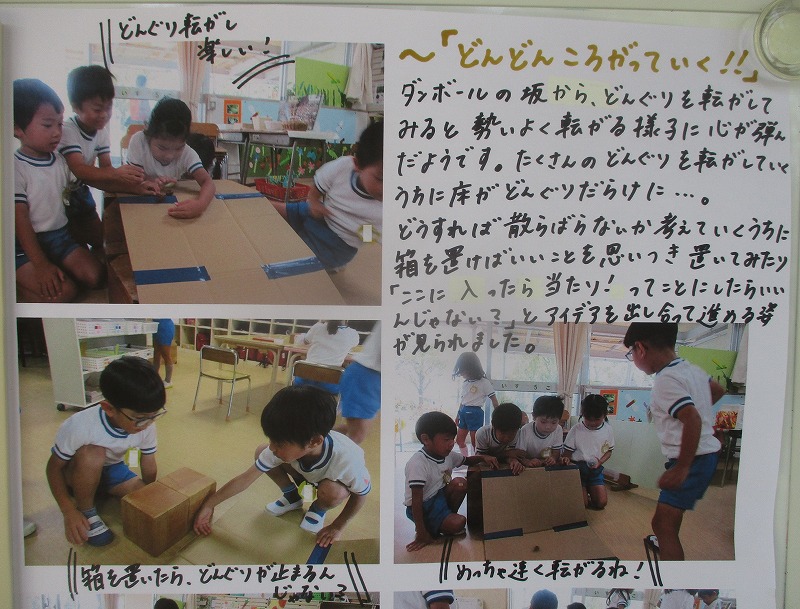 どんぐり転がし
楽しい!
～「どんどんころがっていく!!」
ダンボールの坂から、どんぐりを転がして
みると勢いよく転がる様子に心が弾ん
だようです。たくさんのどんぐりを転がしていく
うちに床がどんぐりだらけに…。
どうすれば散らばらないか考えていくうちに
箱を置けばいいことを思いつき置いてみたり
「ここに入ったら当たり!ってことにしたらいい
んじゃない?」とアイデアを出し合って進める姿
が見られました。
箱を置いたら、どんぐりが止まるん
じゃない?
めっちゃ速く転がるね!